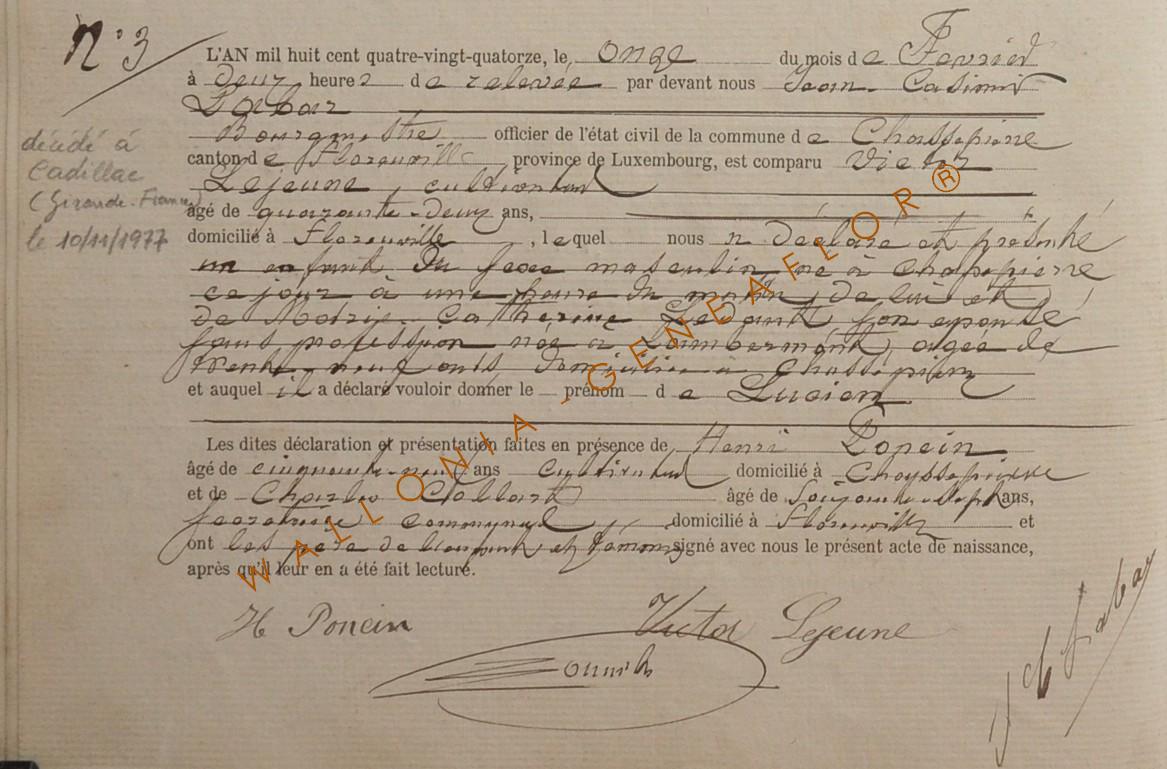 N° 3
L'AN mil huit cent quatre-vingt-quatorze, le onze du mois de Fevrier
à deux heures de relevée par devant nous Jean-Casimir
Labar
Bourgmestre officier de l'état civil de la commune de Chassepierre
canton de Florenville, province de Luxembourg, est comparu Victor
Lejeune, cultivateur
âgé de quarante-deux ans,
domicilié à Florenville, lequel nous a déclaré et présenté
un enfant du sexe masculin né à Chassepierre
ce jour à une heure du matin, de lui et
de Marie-Catherine son épouse
sans profession née à âgée de
trente-neuf ans, domiciliée à Chassepierre
et auquel il a déclaré vouloir donner le prénom de Lucien
Les dites déclaration et présentation faites en présence de Henri Poncin
âgé de cinquante-neuf ans cultivateur domicilié à Chassepierre
et de Charles Collard âgé de ans,
secrétaire communal, domicilié à Florenville et
ont les père de l'enfant et témoins signé avec nous le présent acte de naissance,
après qu'il leur en a été fait lecture.
H Poncin
Victor Lejeune
J C Labar
décédé à
Cadillac
(Gironde-France)
le 10/11/1977
WALLONIA, GENEAFLOR ®